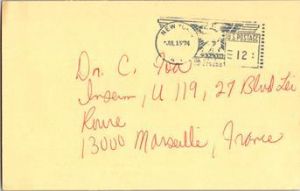 NEW YORK
JUL 15 '74
U.S. POSTAGE
12
Dr. C.
Inserm, U 119, 27 Blvd Lei
Roure
13000 Marseille, France